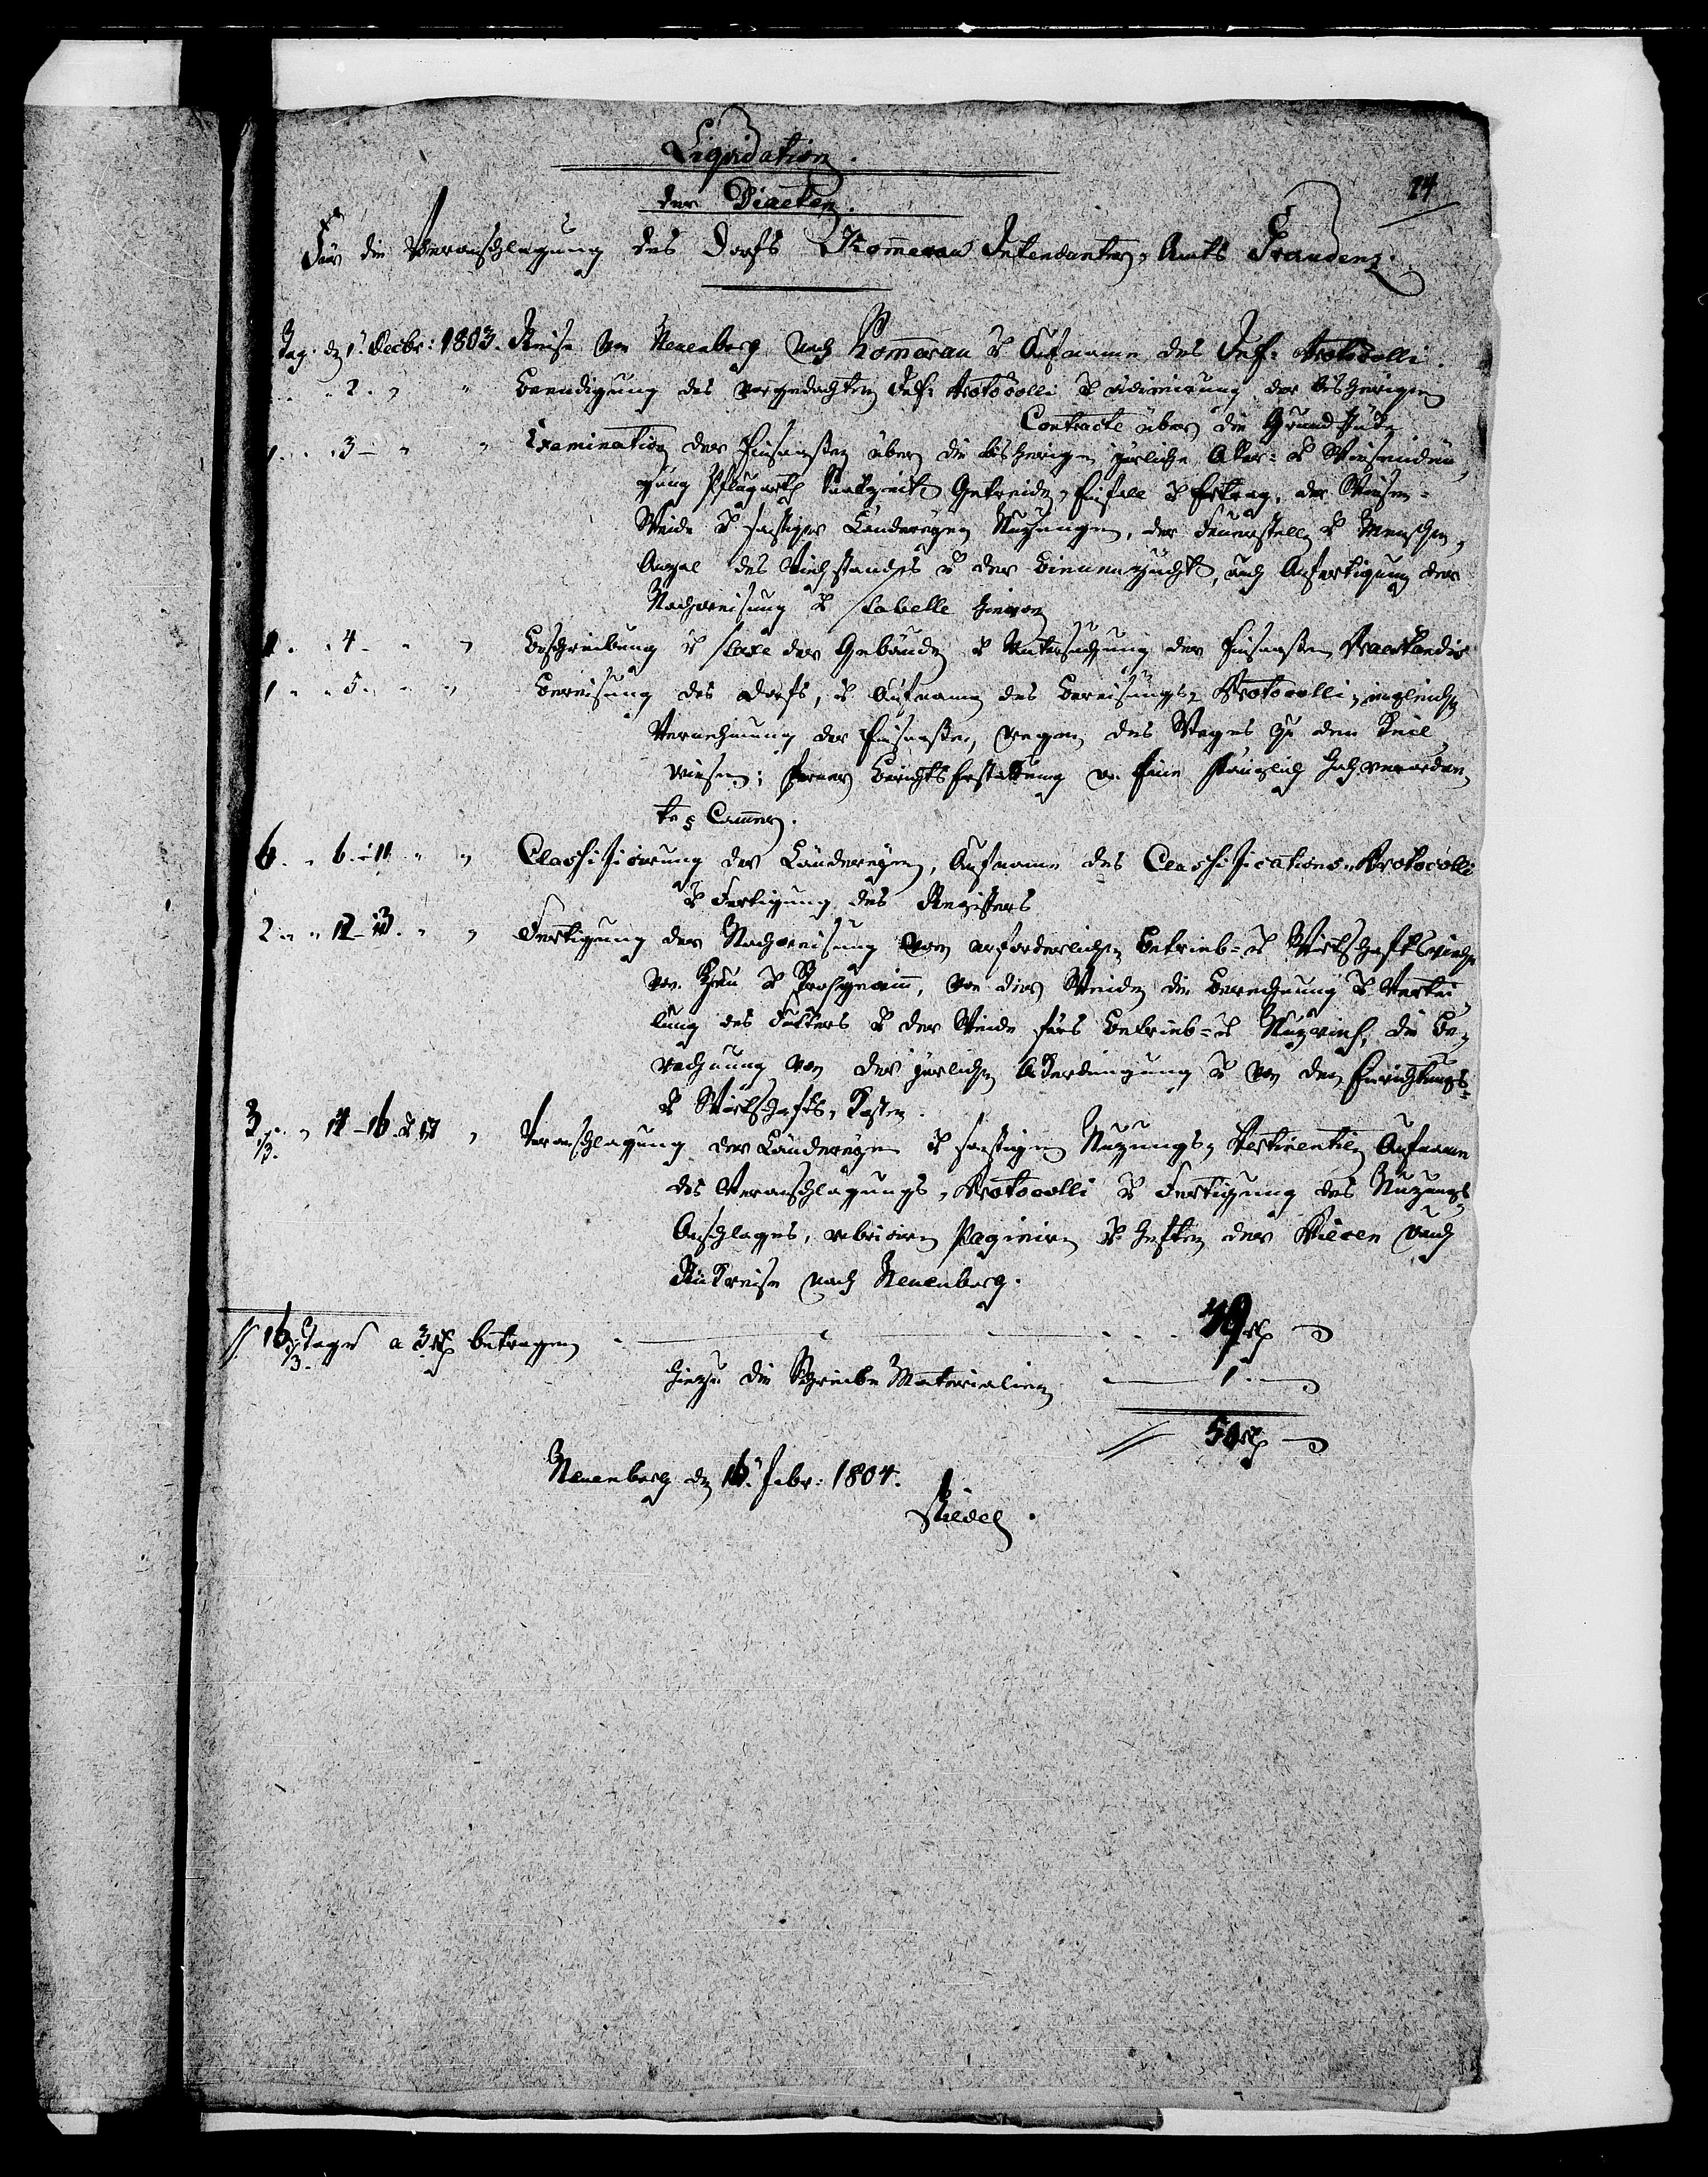 Liquidation.
24
der Diaeten.
Für die Veranschlagung des Dorfs Kom̃erau Intendantur-Amts Graudenz.
Tag. d 1. Decbr: 1803. Reise von Neuenberg nach Kom̃erau & Aufname des Inf: Protocolli.
" 2. " " Beendigung des vorgedachten Inf: Protocolli & vidimirung der bisherigen
Contracte über die Grundstüke
1. " 3 – " " Examination der Einsaaßen über die bisherigen järliche Aker= &
gung Pflugart Getreide-Einfall & Ertrag, der Wiesen=
Weide & sonstiger Länderejen Nuzungen, der Feuerstelln & Menschen-
Anzal des Viehstandes & der Bienenzucht, auch Anfertigung der
Nachweisung & Tabelle hievon
1. " 4 – " " Beschreibung & Taxe der Gebäude & Untersuchung der Einsaaßen Praestandis
1 " 5. " " Bereisung des Dorfs, & Aufname des Bereisungs-Protocolli, ingleichen
Vernehmung der Einsaaßen, wegen des Weges zu den
wiesen; ferner Berichts Erstattung an Eine Hochverordne-
te Cam̃er.
6. " 6.–11 " " Classificierung der Länderejen, Aufname des Classifications-Protocolli
& Fertigung des Registers
2. " 12–13. " " Fertigung der Nachweisung vom erforderlichen Betrieb= & Wirtschaftsviehe
von Heu & Strohgewin̄, von der Weide die Berechnung & Vertei-
lung des Futters & der Weide fürs Betrieb= & Nuzvieh, die Be-
rechnung von der järlichen Akerdüngung & von den Einrichtungs=
& Wirtschafts-Kosten.
3. 1/3. " 14–16. & 17 " Veranschlagung der Länderejen & sonstigen Nuzungs-Pertinentien Aufname
des Veranschlagungs-Protocolli & Fertigung des Nuzungs-
Anschlages, rubriciren paginiren & heften der Piecen auch
Rükreise nach Neuenberg.
// 16. 1/3. Tage a 3 rth betragen 49 rth
hiezu die Schreibe Materialien 1.
// 50 rth
Neuenberg d 16. Febr: 1804.